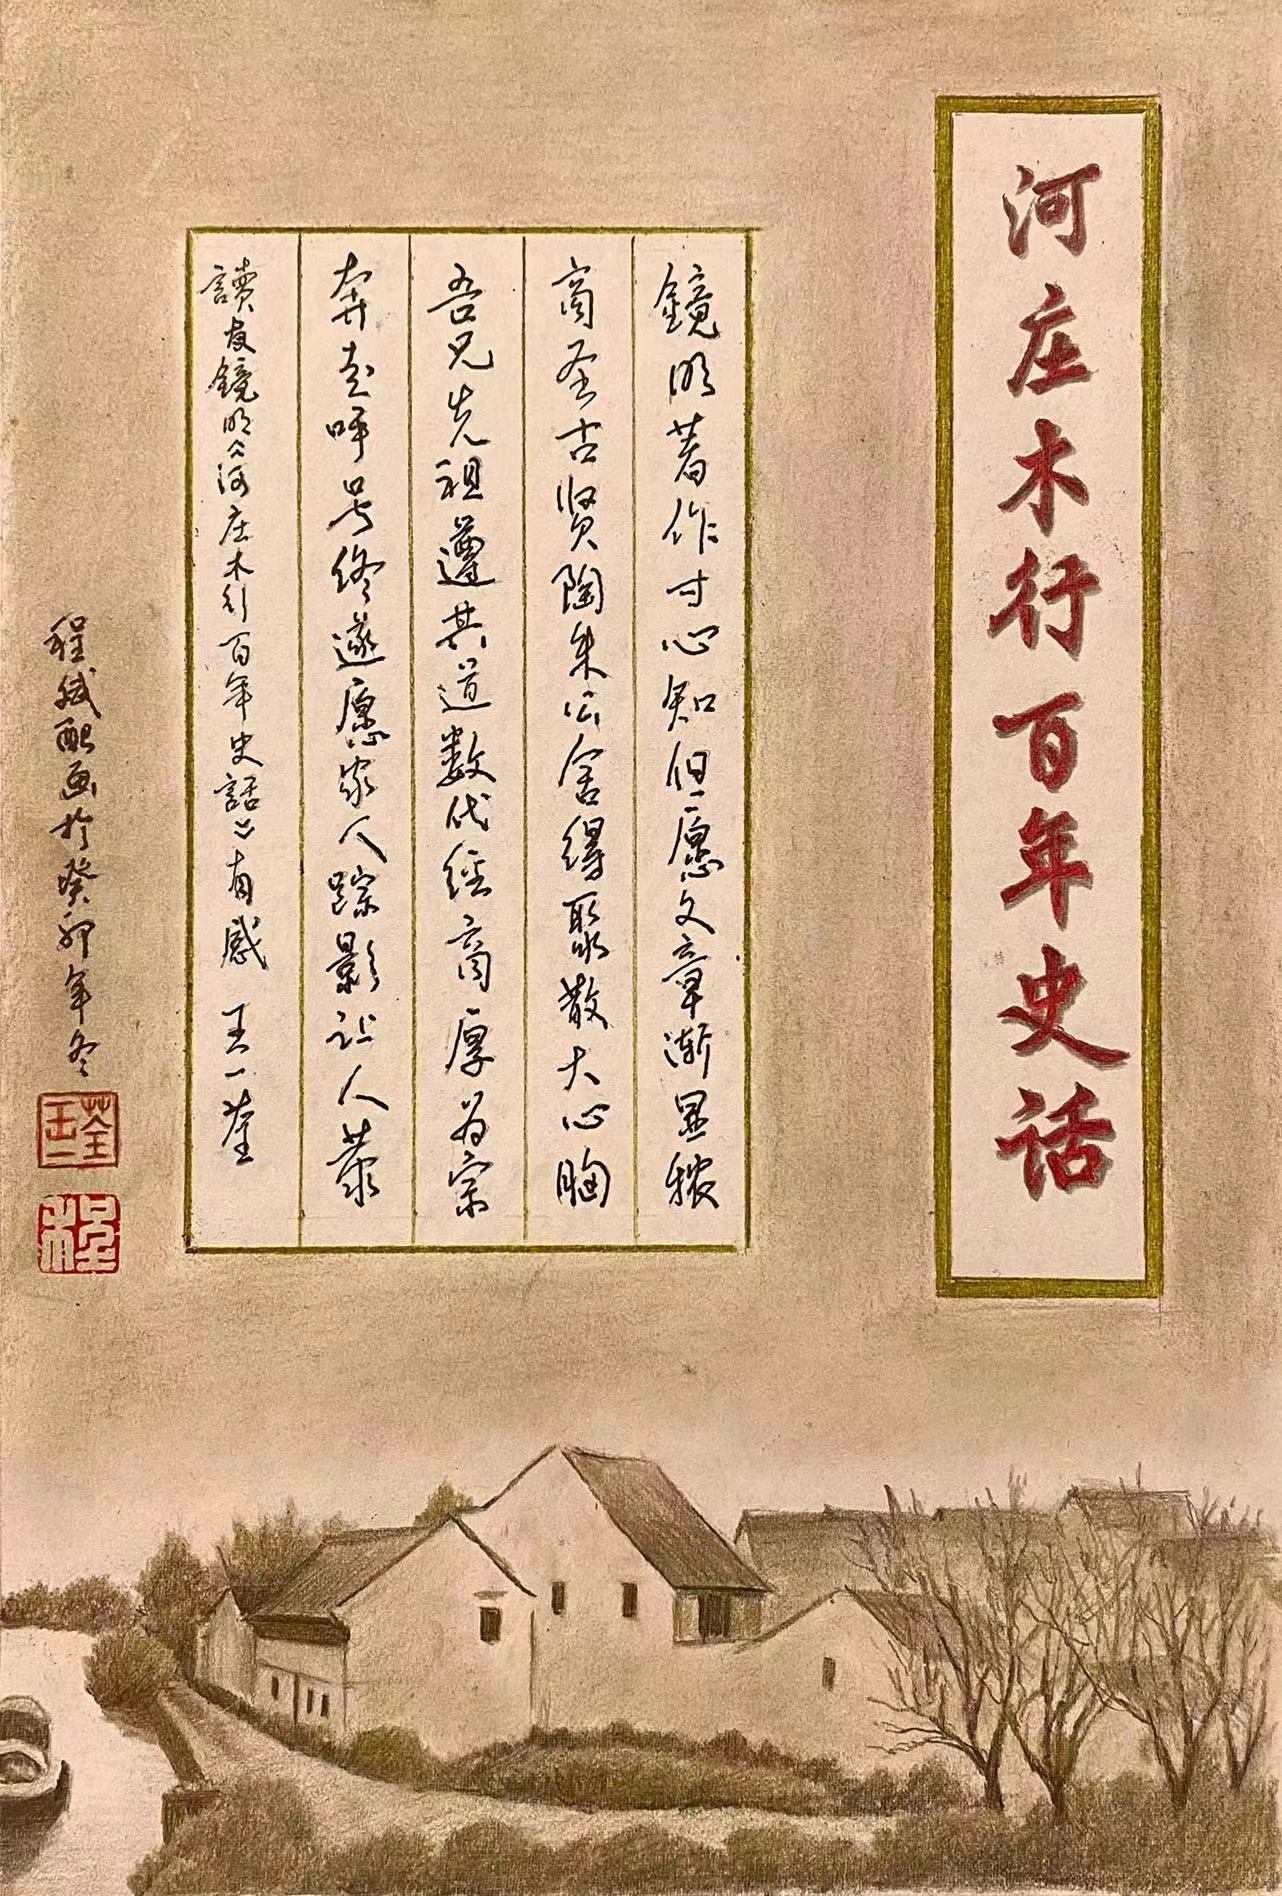 河庄木行百年史话
鏡明著作寸心知但愿文章渐显秾
商圣古贤陶朱公舍得聚散大心胸
吾兄先祖遵其道数代经商厚为宗
奔走呼号终遂愿家人踪影让人恭
讀友鏡明《河庄木行百年史話》有感 王一荃
程斌配画於癸卯年冬
王一荃
程